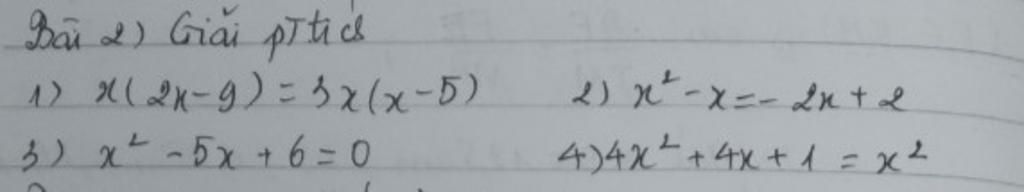 Bài 2) Giải pT tích
1) x(2x-9) = 3x(x-5) 2) x² - x = - 2x + 2
3) x² - 5x + 6 = 0 4) 4x² + 4x + 1 = x²